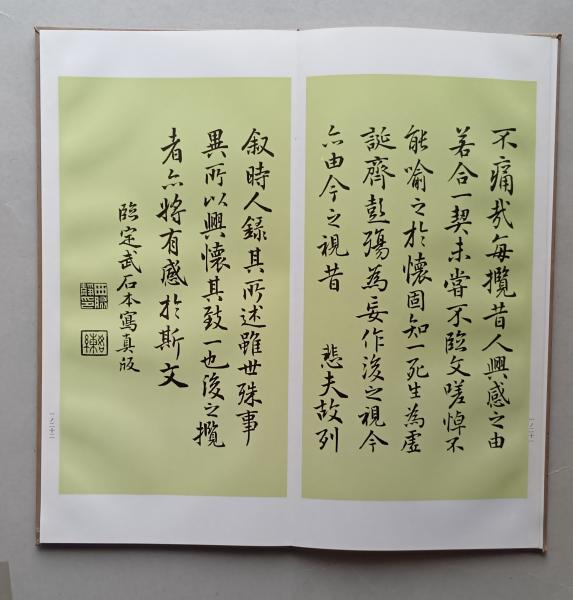 不痛哉每攬昔人興感之由
若合一契未嘗不臨文嗟悼不
能喻之於懷固知一死生為虛
誕齊彭殤為妄作後之視今
亦由今之視昔 悲夫故列
叙時人錄其所述雖世殊事
異所以興懷其致一也後之攬
者亦將有感於斯文
臨定武石本寫真版